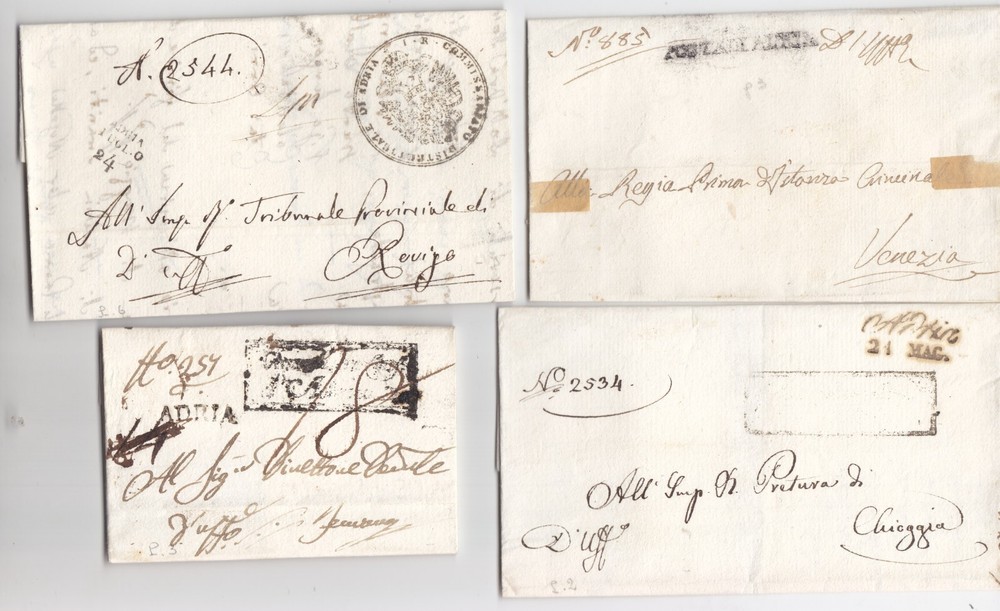 N. 2544.
I. R. COMMISSARIATO DISTRETTUALE DI ADRIA
ADRIA
LUGLIO
24
All' Imp. R. Tribunale Provinciale di
D'uff.º Rovigo
P. 6
Nº 885 D'Uffº
P3
Alla Regia Prima Istanza Criminale
Venezia
Nº 257
18
ADRIA
Al Sigr Direttore
d'uffº
P. 3
Adria
21 MAG.
Nº 2534.
All' Imp. R. Pretura di
D'Uffº Chioggia
P. 2